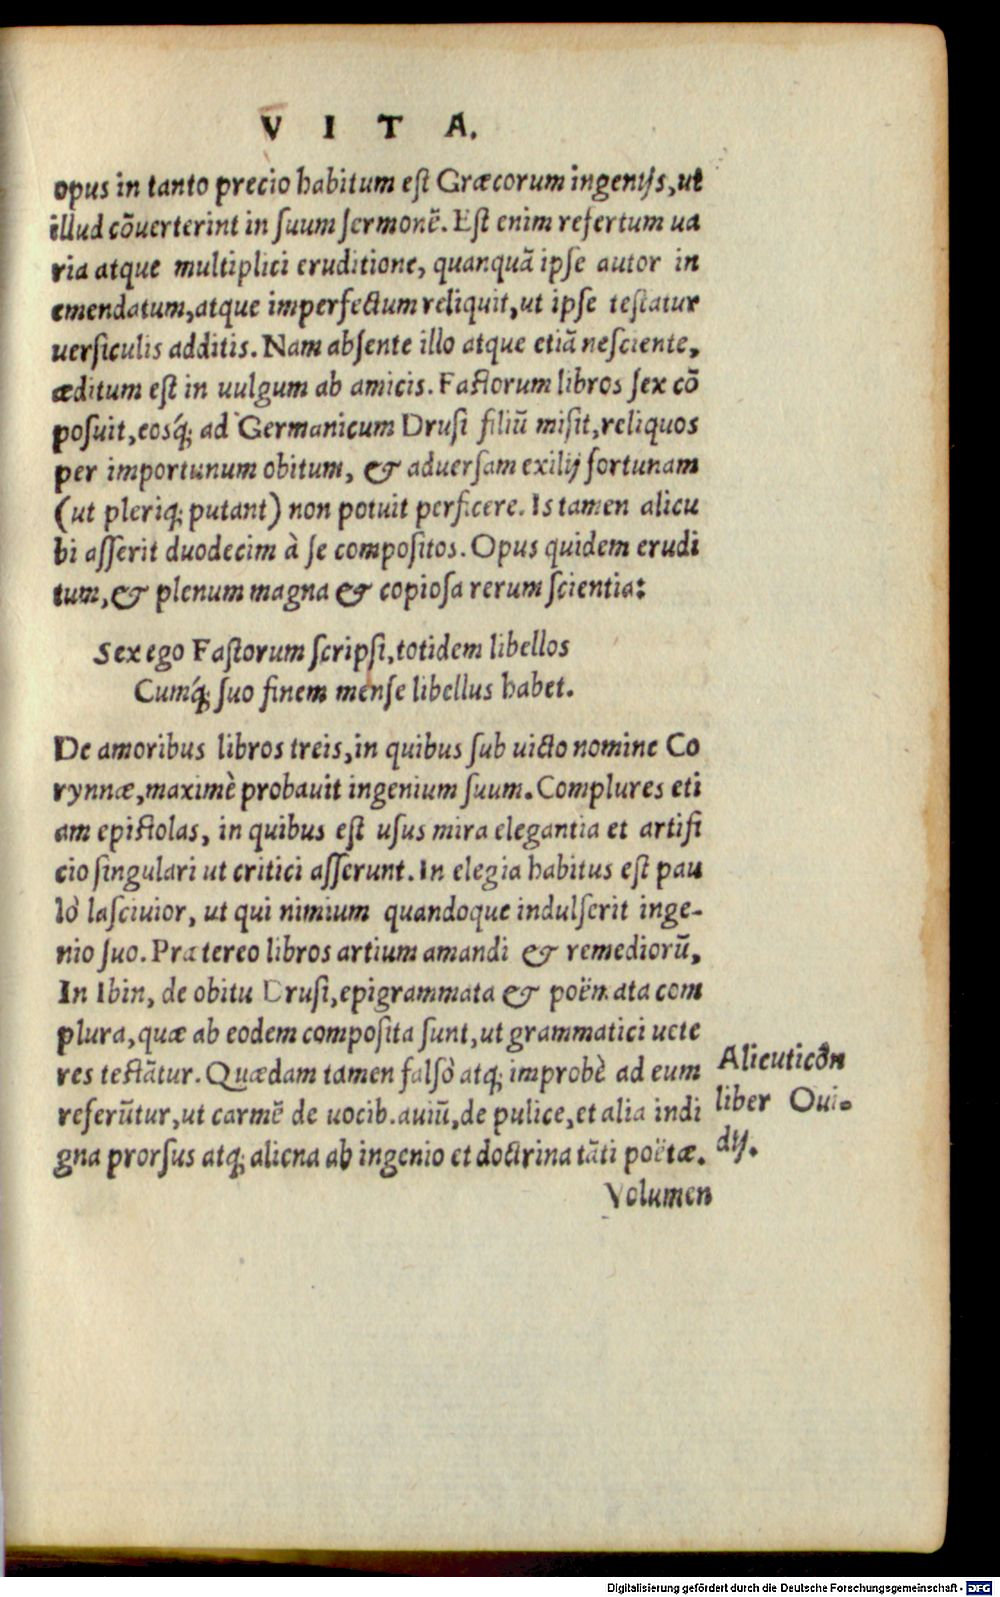 VITA.
opus in tanto precio habitum eſt Græcorum ingenijs, ut
illud cõuerterint in ſuum ſermonẽ. Eſt enim refertum ua
ria atque multiplici eruditione, quanquã ipſe autor in
emendatum, atque imperfectum reliquit, ut ipſe teſtatur
uerſiculis additis. Nam abſente illo atque etiã neſciente,
æditum eſt in uulgum ab amicis. Faſtorum libros ſex cõ
poſuit, eosq́; ad Germanicum Druſi filiũ miſit, reliquos
per importunum obitum, & aduerſam exilij fortunam
(ut pleriq; putant) non potuit perficere. Is tamen alicu
bi aſſerit duodecim à ſe compoſitos. Opus quidem erudi
tum, & plenum magna & copioſa rerum ſcientia:
Sex ego Faſtorum ſcripſi, totidem libellos
Cumq́; ſuo finem menſe libellus habet.
De amoribus libros treis, in quibus ſub uicto nomine Co
rynnæ, maximè probauit ingenium ſuum. Complures eti
am epiſtolas, in quibus eſt uſus mira elegantia et artifi
cio ſingulari ut critici aſſerunt. In elegia habitus eſt pau
lò laſciuior, ut qui nimium quandoque indulſerit inge-
nio ſuo. Prætereo libros artium amandi & remediorũ,
In Ibin, de obitu Druſi, epigrammata & poëmata com
plura, quæ ab eodem compoſita ſunt, ut grammatici uete
res teſtãtur. Quædam tamen falſò atq; improbè ad eum
referũtur, ut carmẽ de uocib. auiũ, de pulice, et alia indi
gna prorſus atq; aliena ab ingenio et doctrina tãti poëtæ.
Alieuticôn
liber Oui-
dij.
Volumen
Digitalisierung gefördert durch die Deutsche Forschungsgemeinschaft - DFG